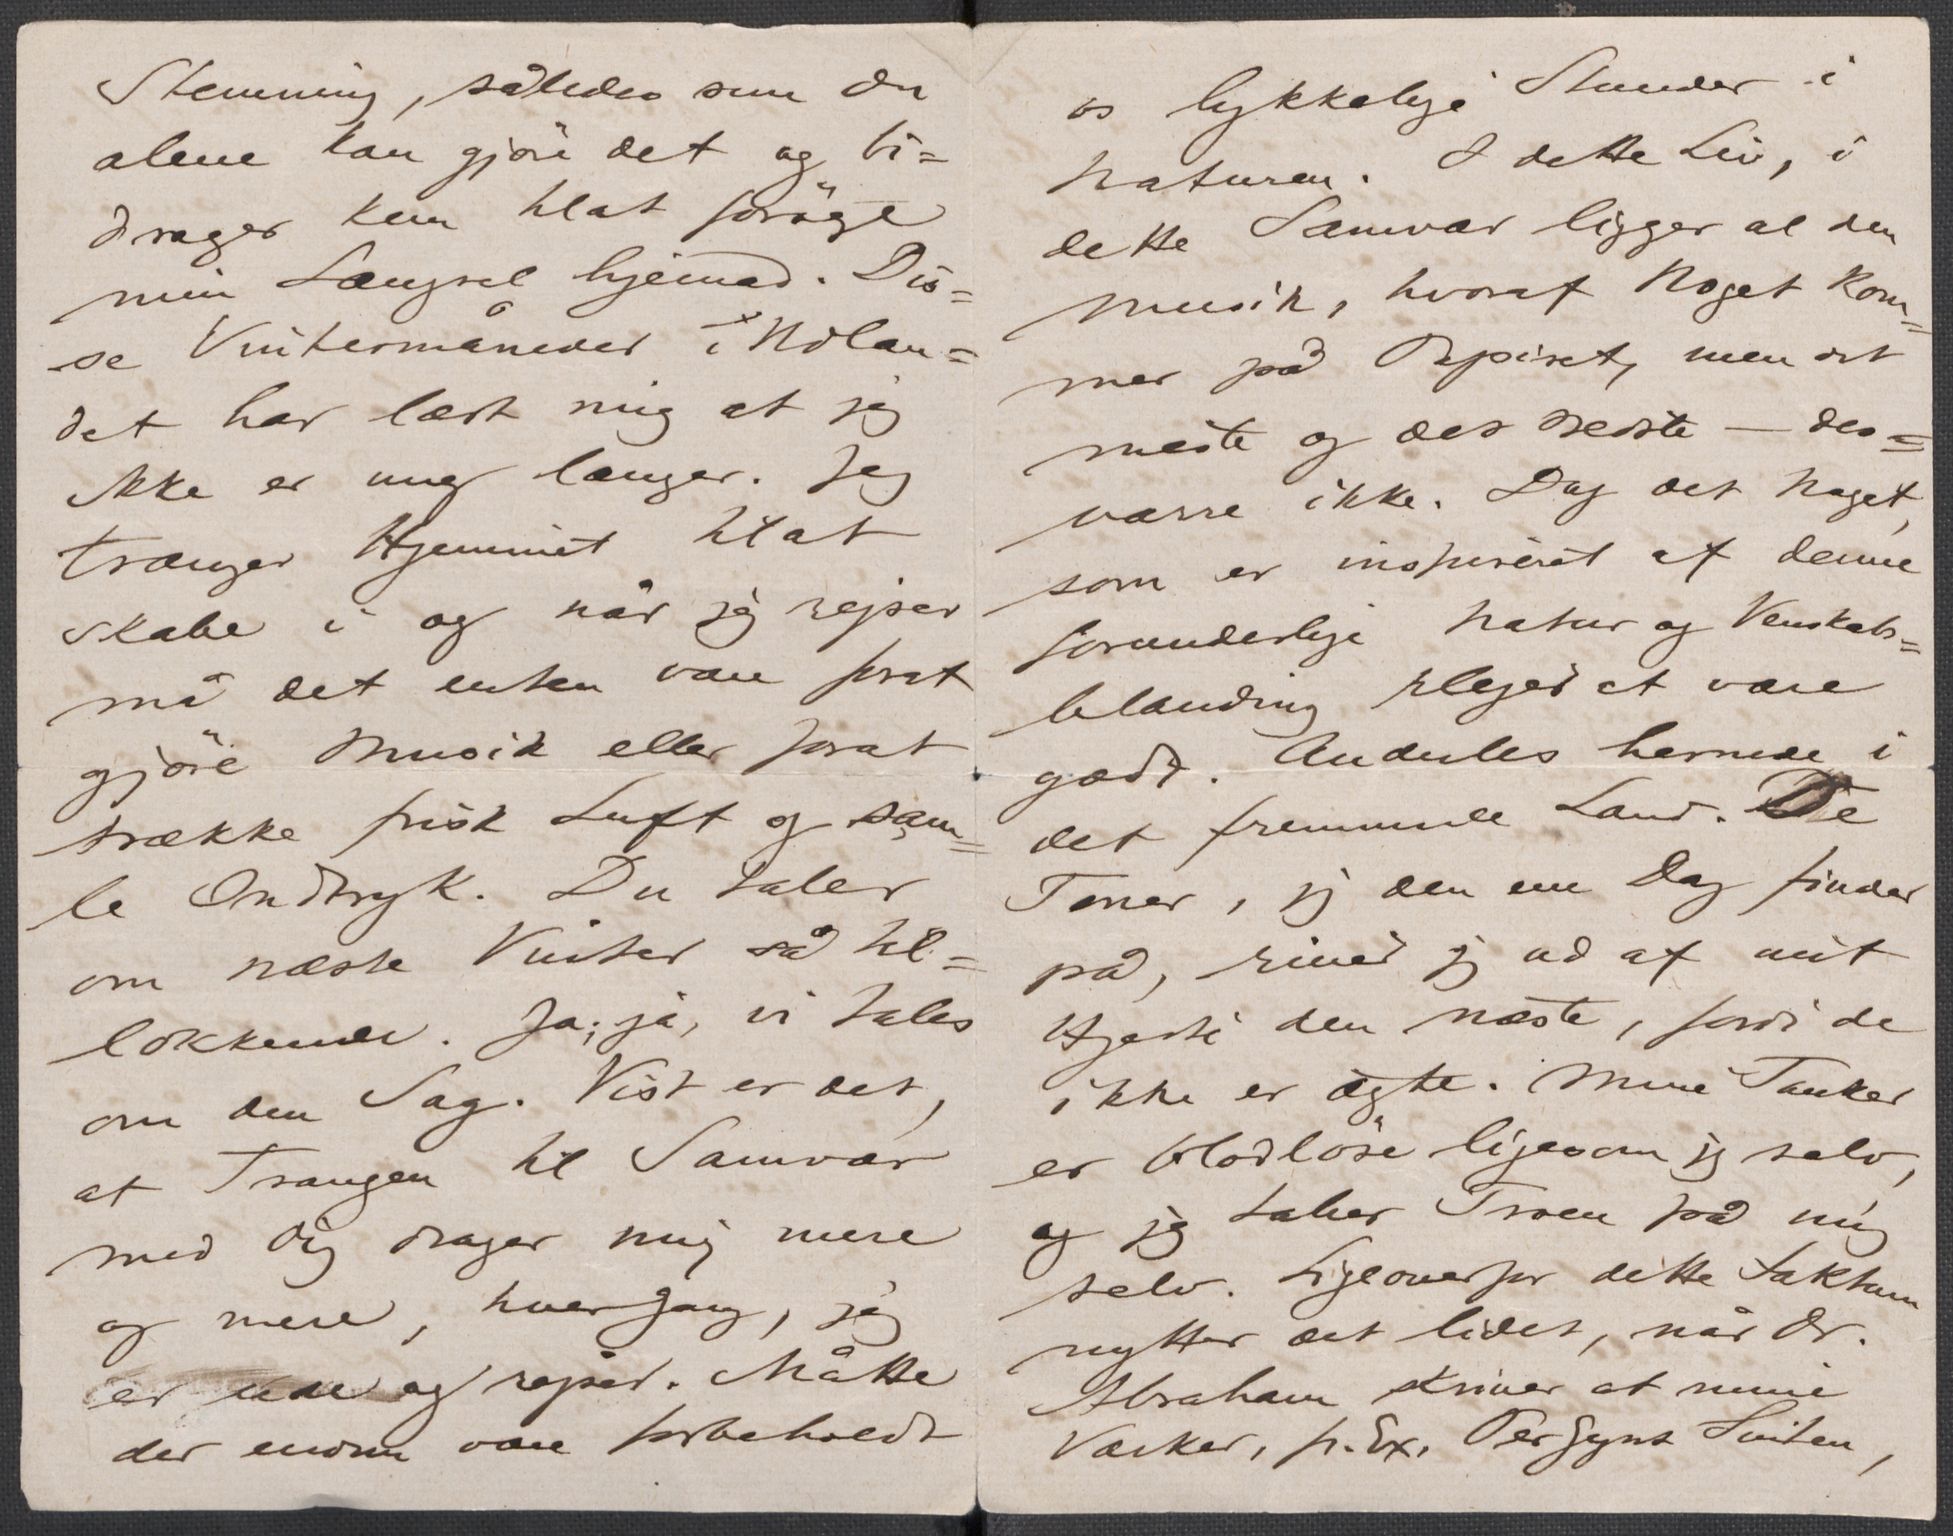 Stemning, således som du
alene kan gjöre det og bi=
drager kun til at foröge
min Længsel hjemad. Dis=
se Vintermåneder i Udlan=
det har lært mig at jeg
ikke er ung længer. Jeg
trænger Hjemmet til at
skabe i og når jeg rejser
må det enten være forat
gjöre Musik eller forat
trække frisk Luft og sam=
le Indtryk. Du taler
om næste Vinter så til=
lokkende. Ja, ja, vi tales
om den Sag. Vist er det,
at Trangen til Samvær
med dig drager mig mere
og mere, hvergang, jeg
er ude og rejser. Måtte
der endnu være forbeholdt
os lykkelige Stunder i
Naturen. I dette Liv, i
dette Samvær ligger al den
Musik, hvoraf Noget kom=
mer på Papiret, men det
meste og det bedste — des=
værre ikke. Dog det Noget,
som er inspireret af denne
forunderlige Natur og Venskabs=
blanding plejer at være
godt. Anderles hernede i
det fremmede Land. De
Toner, jeg den ene Dag finder
på, river jeg ud af mit
Hjerte den næste, fordi de
ikke er ægte. Mine Tanker
er blodlöse ligesom jeg selv,
og jeg taber Troen på mig
selv. Ligeoverfor dette Faktum
nytter det lidet, når Dr.
Abraham skriver at mine
Værker, f. Ex. Peer Gynt Suiten,